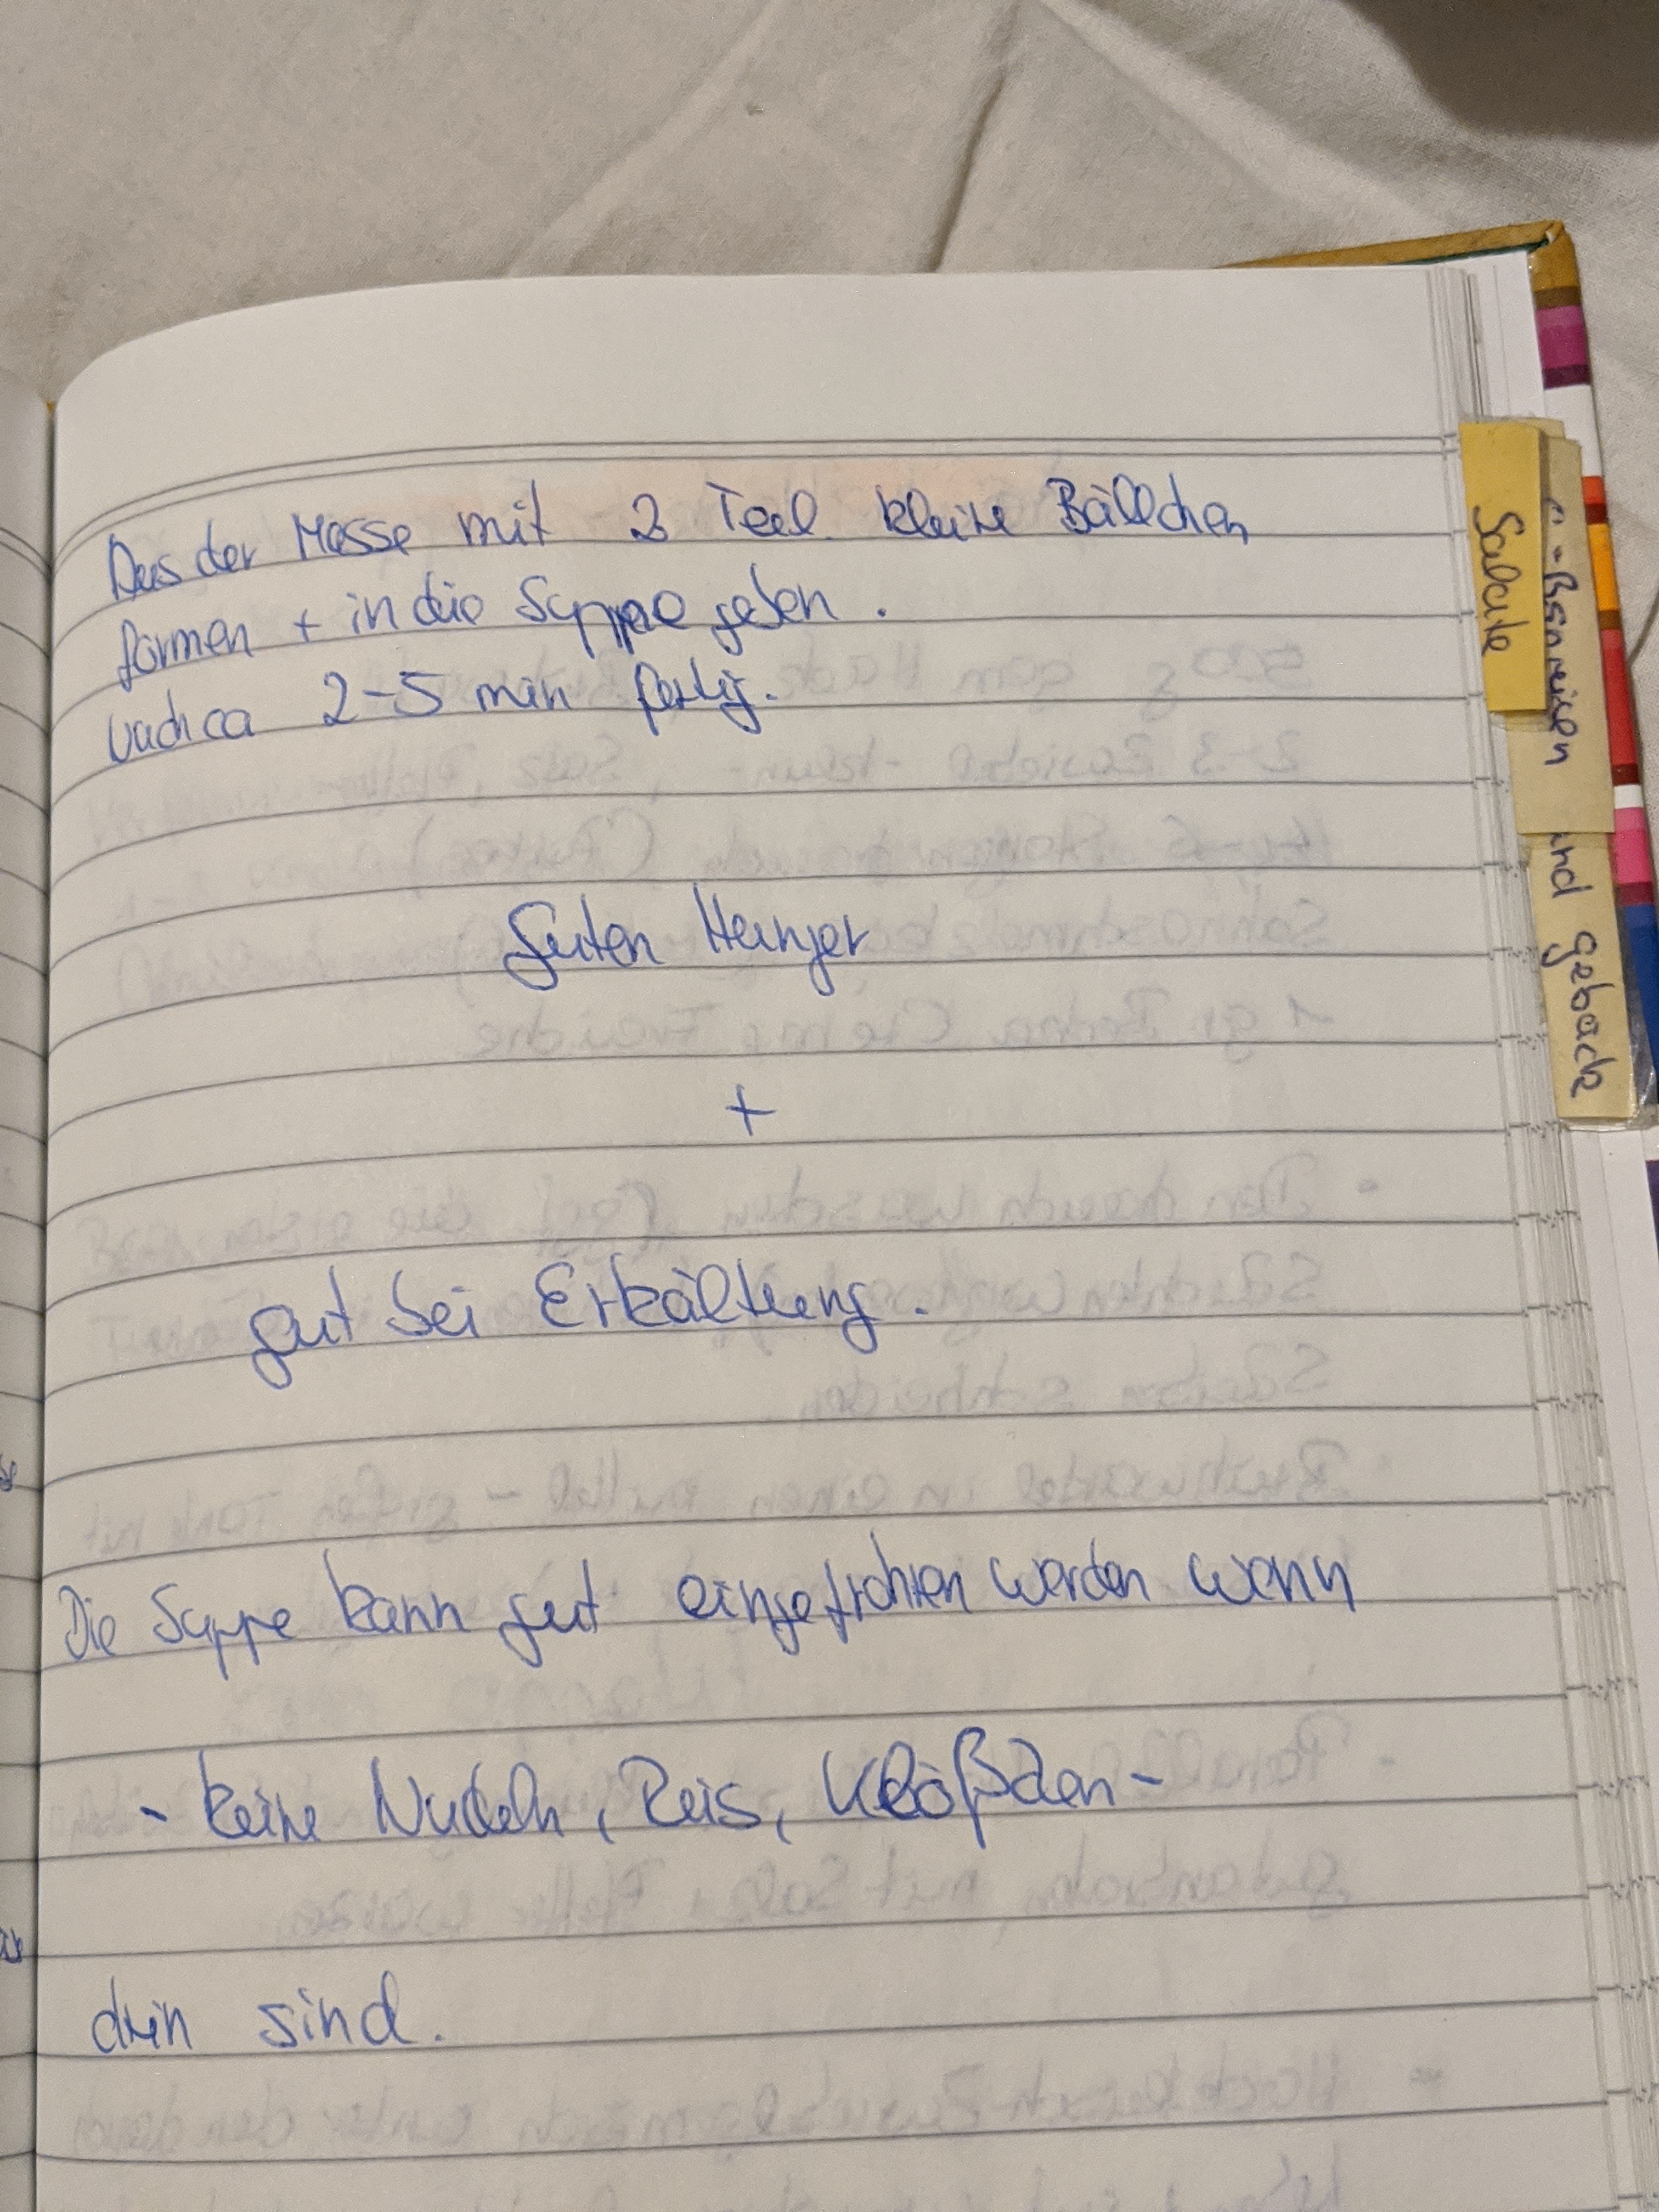 Aus der Masse mit 2 Teel. kleine Bällchen
formen + in die Suppe geben.
nach ca 2-5 min fertig.
Guten Hunger
+
gut bei Erkältung.
Die Suppe kann gut eingefrohren werden wenn
- keine Nudeln, Reis, Klößchen -
drin sind.
Salate
und gebäck